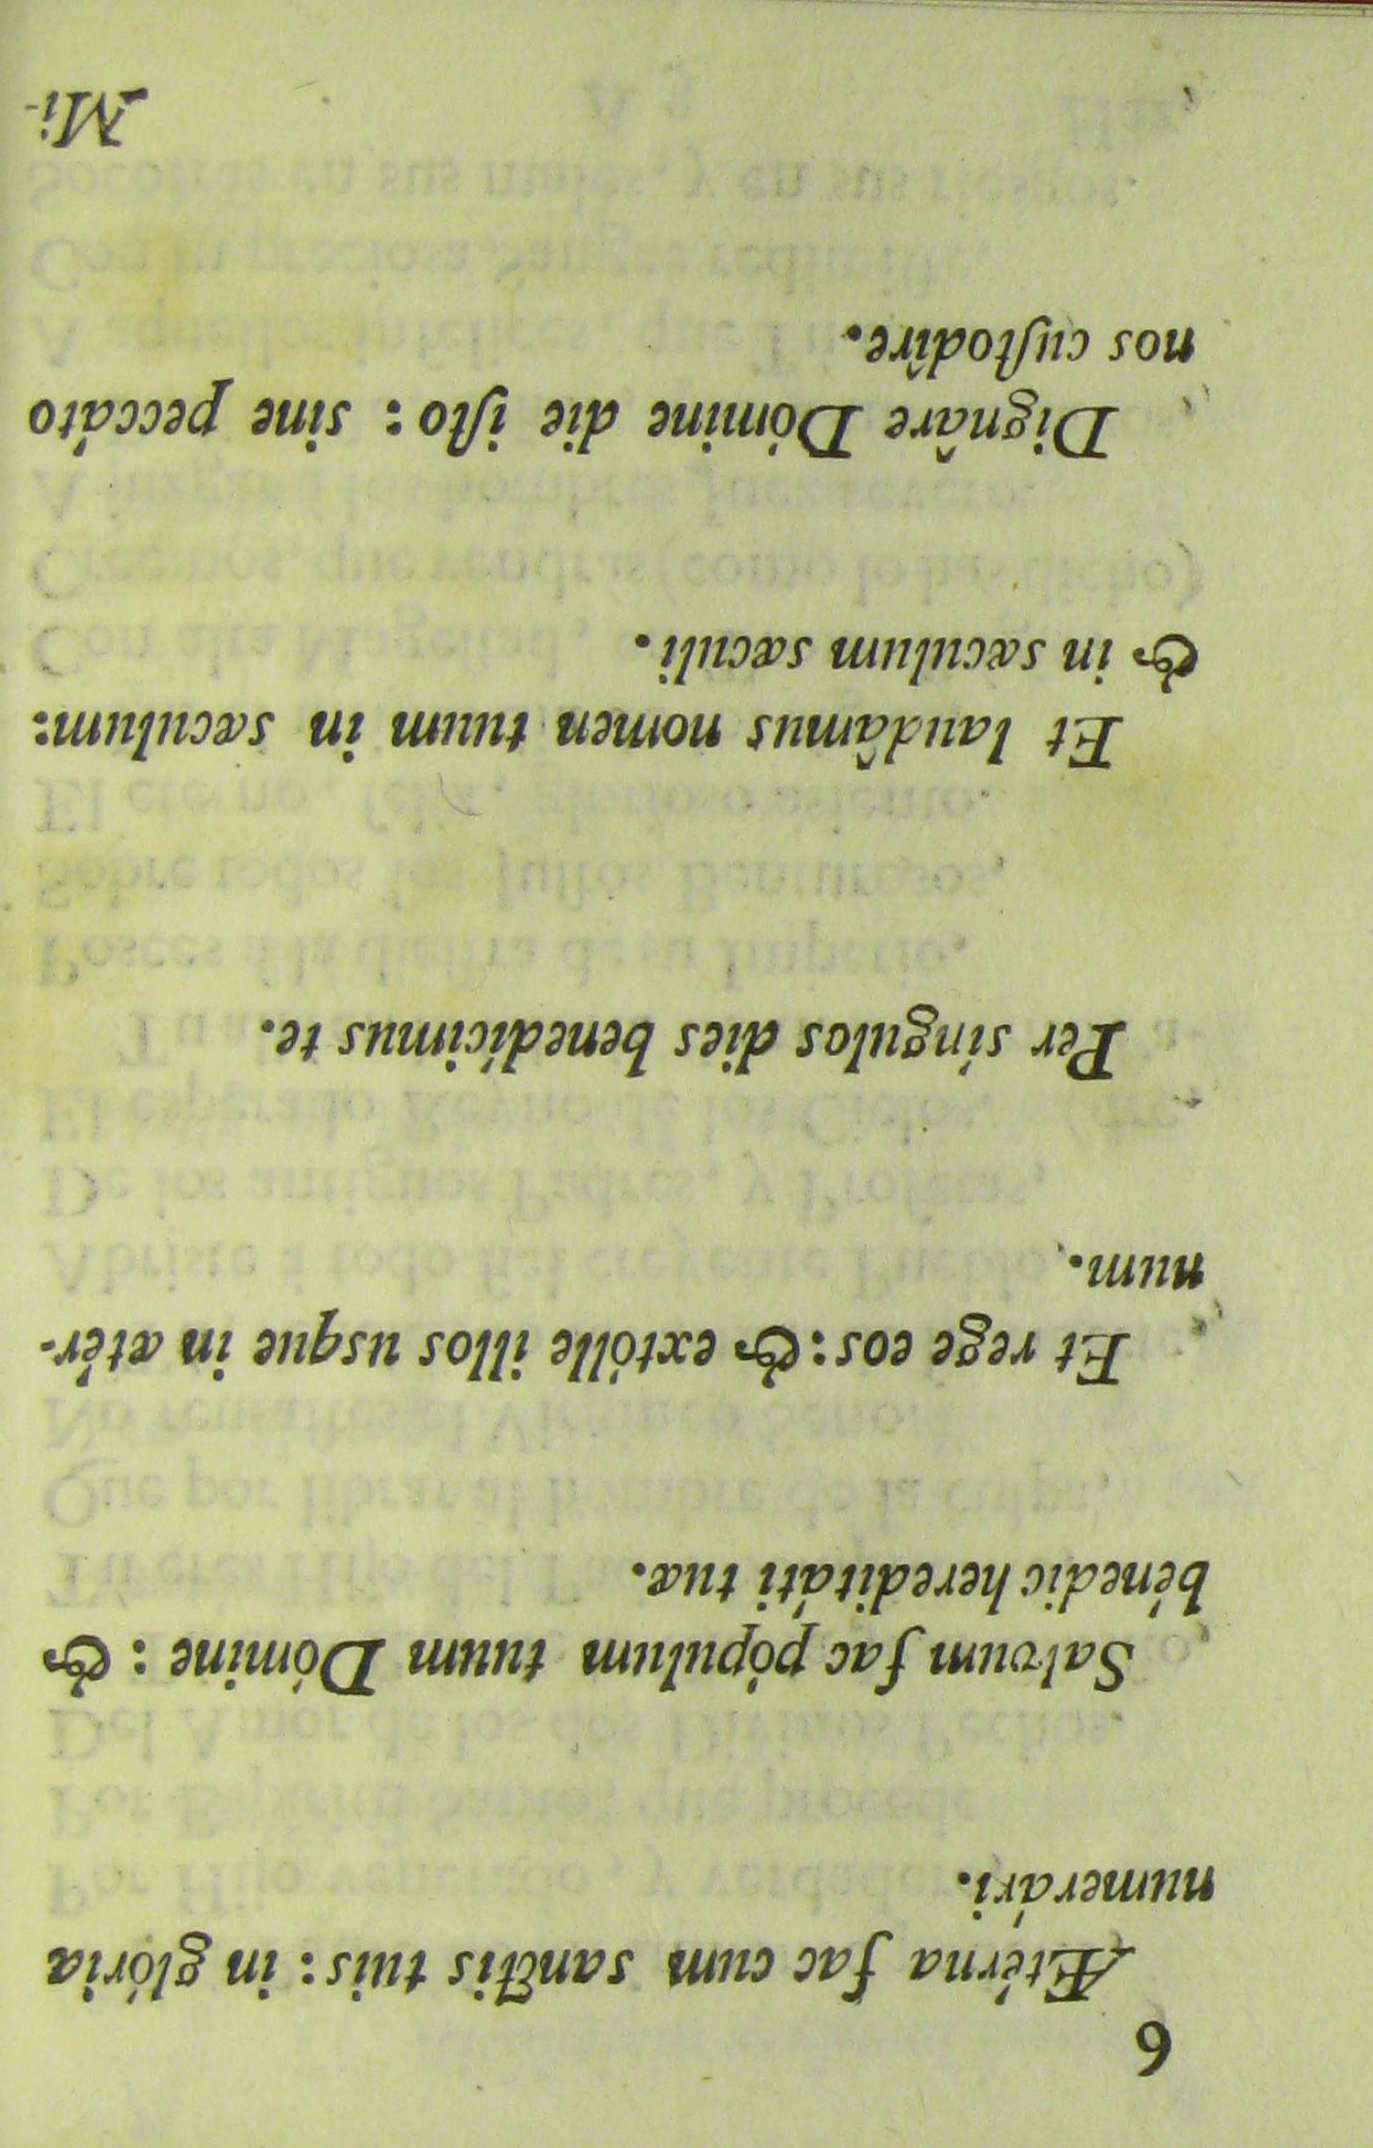 6
Ætérna fac cum sanctis tuis: in glória
numerári.
Salvum fac pópulum tuum Dómine: &
bénedic hereditáti tuæ.
Et rege eos: & extólle illos usque in ætér-
num.
Per síngulos dies benedícimus te.
Et laudâmus nomen tuum in sæculum:
& in sæculum sæculi.
Dignâre Dómine die iſto: sine peccáto
nos cuſtodîre.
Mi-